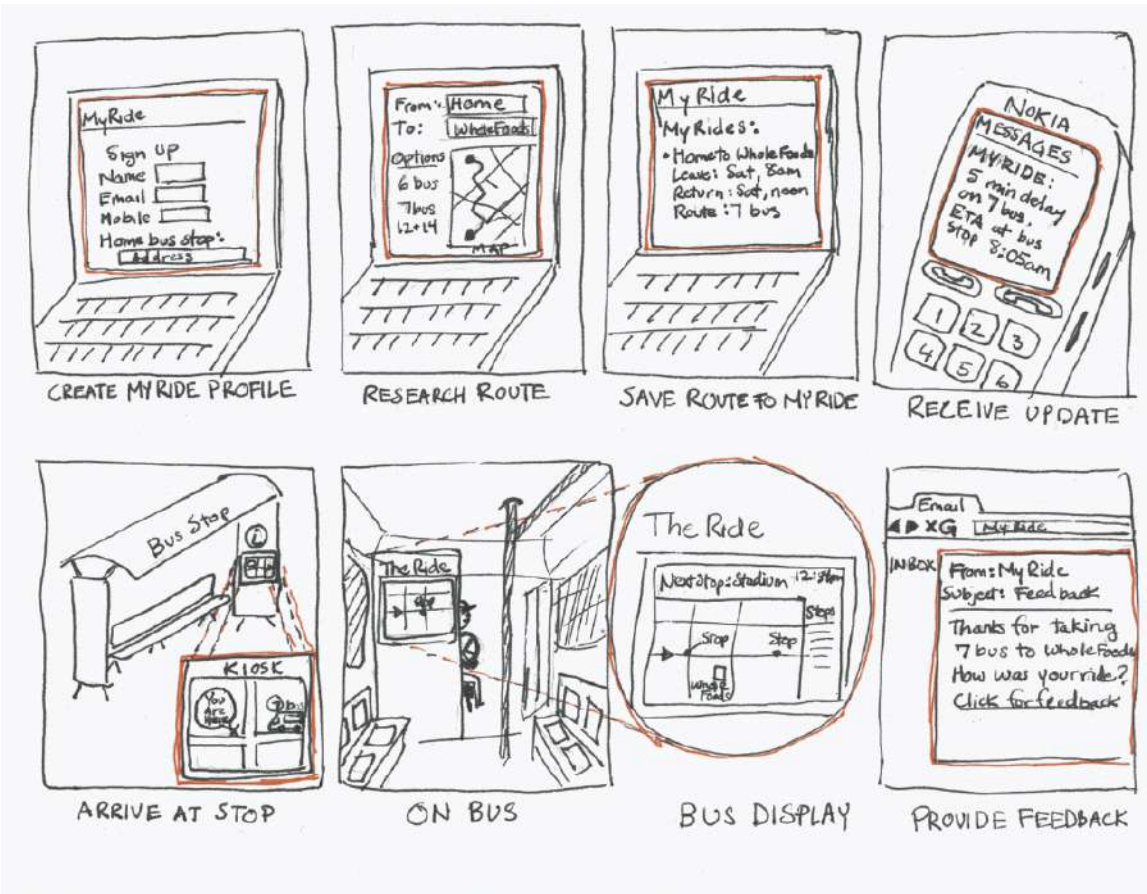 MyRide
Sign up
Name
Email
Mobile
Home bus stop:
Address
CREATE MYRIDE PROFILE
From: Home
To: WholeFoods
Options
6 bus
7 bus
12+14
MAP
RESEARCH ROUTE
My Ride
MyRides:
• Home to Whole Foods
Leave: Sat, 8am
Return: Sat, noon
Route: 7 bus
SAVE ROUTE TO MYRIDE
NOKIA
MESSAGES
MYRIDE:
5 min delay
on 7 bus.
ETA at bus
stop 8:05am
1 2 3
4 5 6
RECEIVE UPDATE
Bus Stop
i
KIOSK
You
are
Here
7 bus
ARRIVE AT STOP
The Ride
ON BUS
The Ride
Next Stop: Stadium
Stops
Stop Stop
Whole
Foods
BUS DISPLAY
Email
My Ride
INBOX
From: My Ride
Subject: Feedback
Thanks for taking
7 bus to Whole Foods
How was your ride?
Click for feedback
PROVIDE FEEDBACK